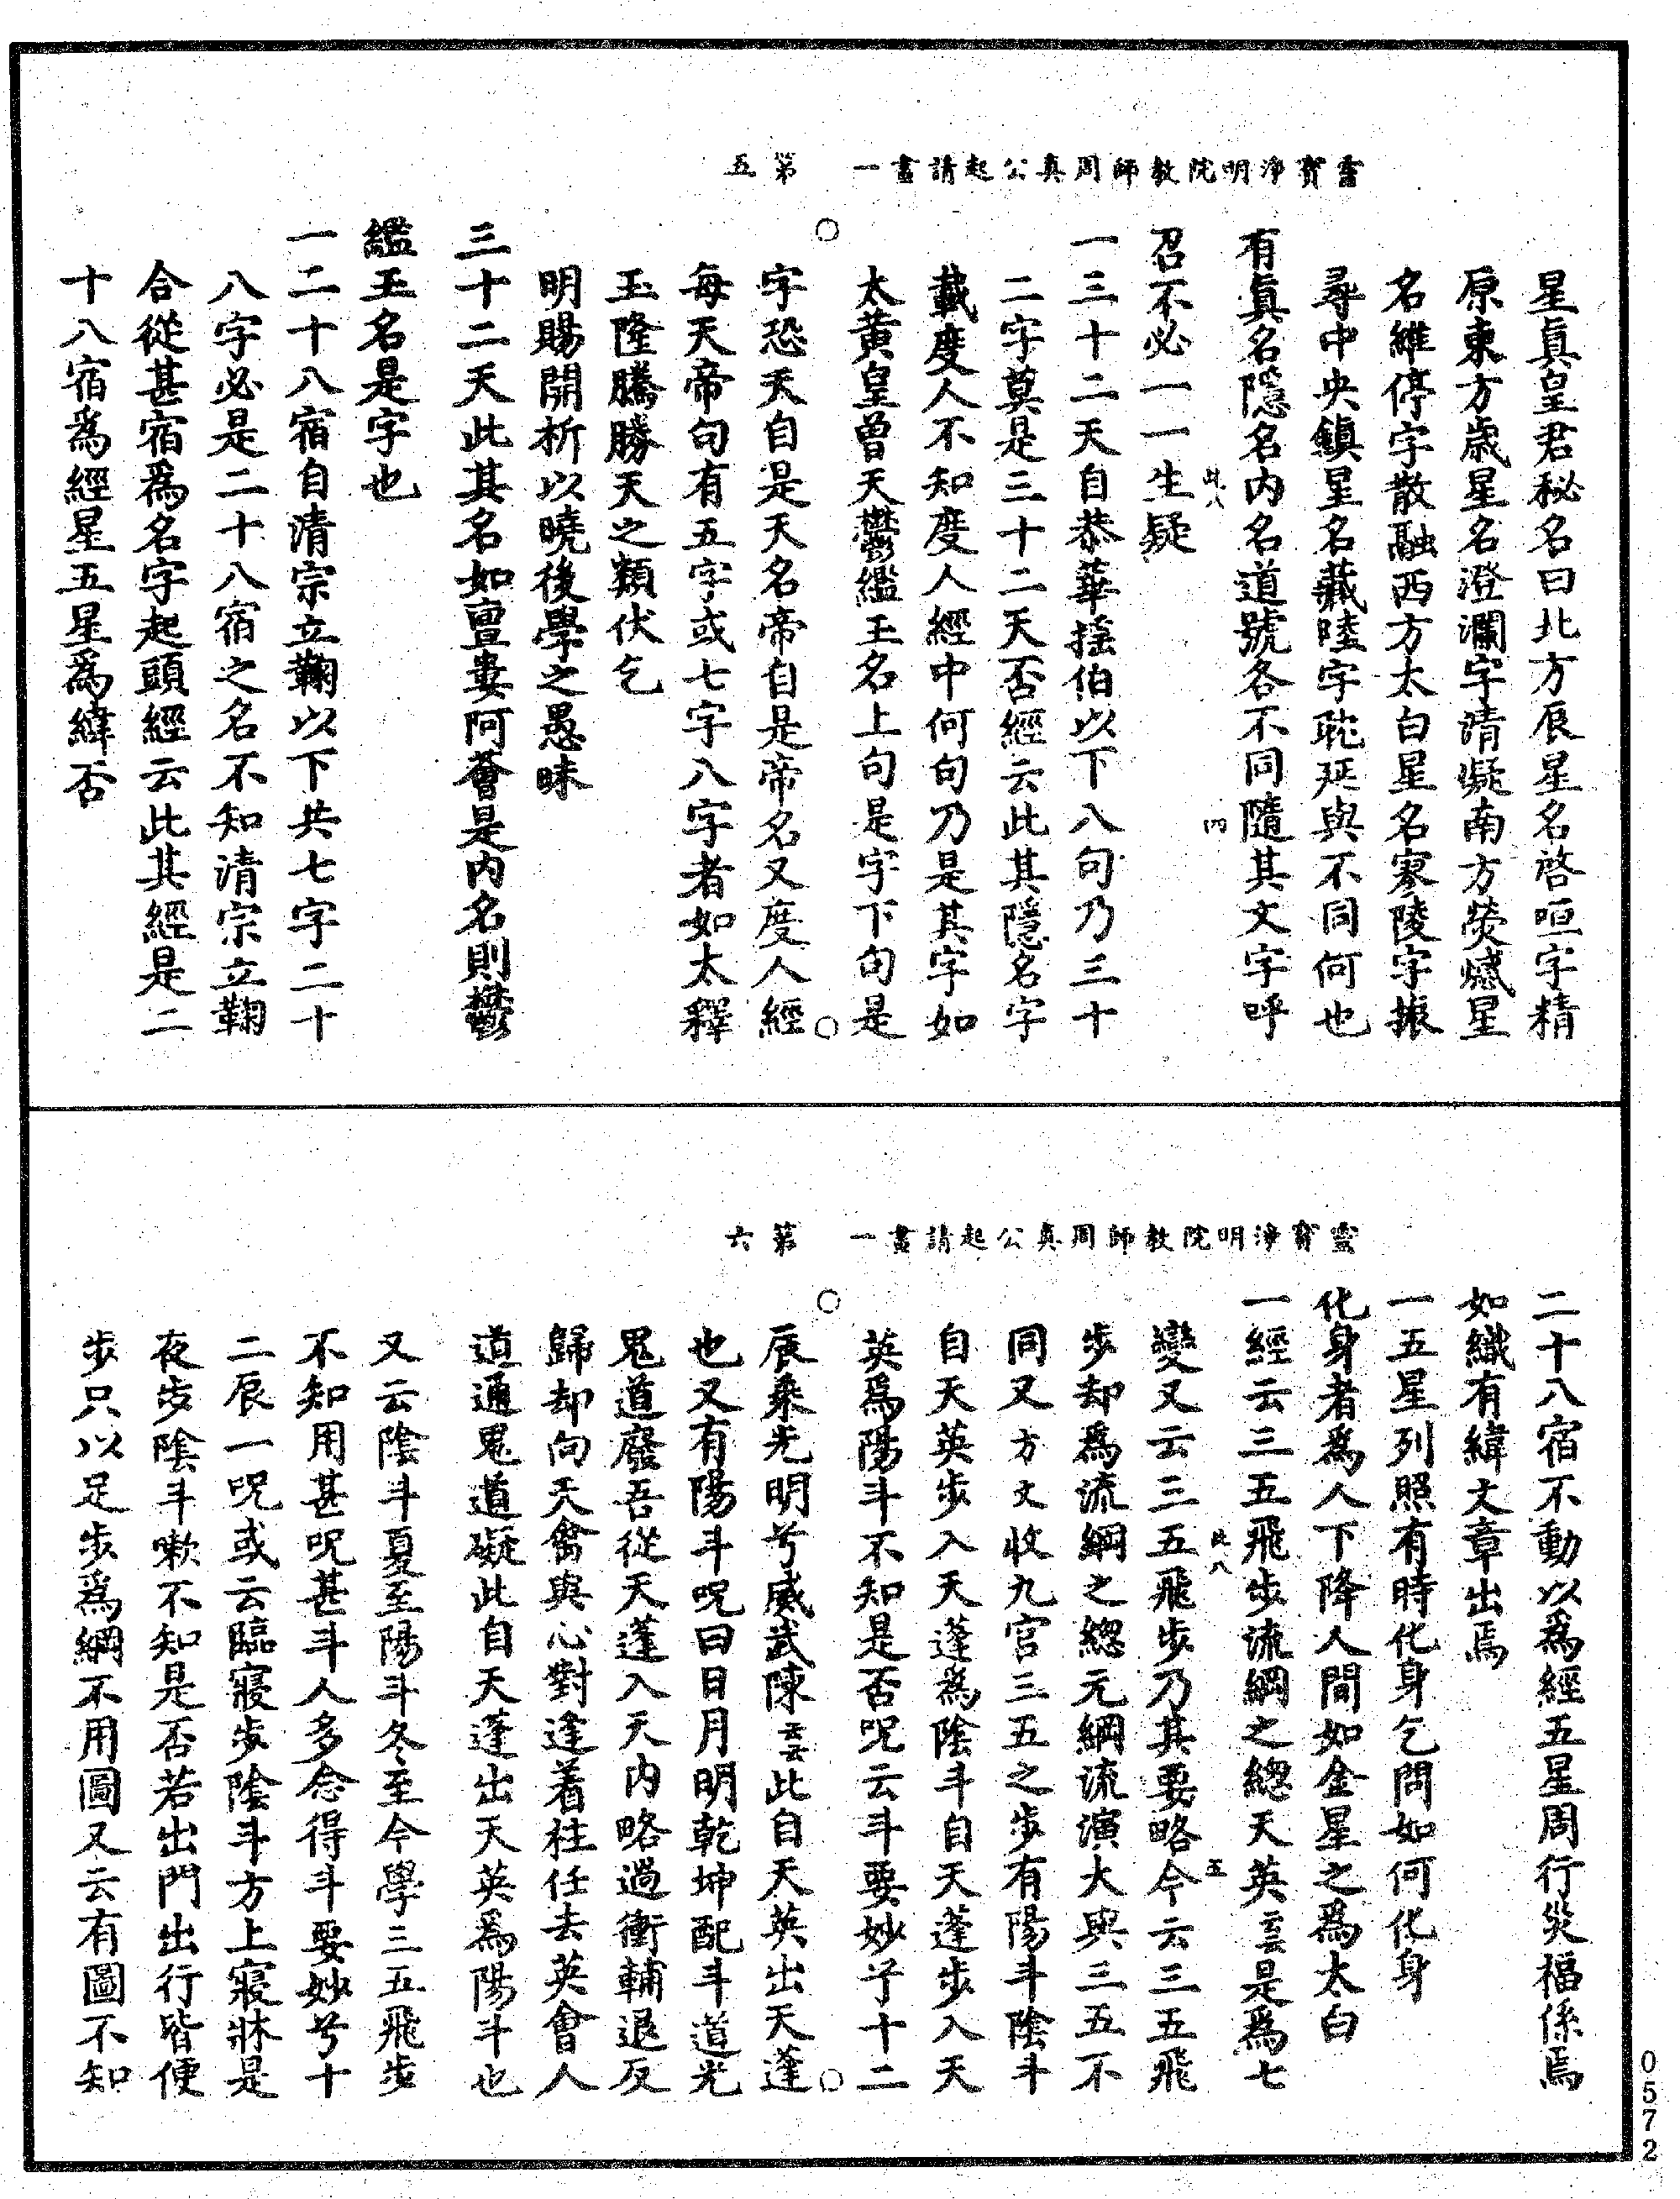 靈寶淨明院教師周真公起請畫一　第五
星眞皇君秘名曰北方辰星名啓咺字精
原東方歲星名澄瀾字清凝南方熒惑星
名維停字散融西方太白星名寥陵字振
尋中央鎮星名藏陸字耽延與不同何也
有眞名隱名内名道號各不同隨其文字呼
此八　四
召不必一一生疑
一三十二天自恭華揺伯以下八句乃三十
二字莫是三十二天否經云此其隱名字
載度人不知度人經中何句乃是其字如
太黄皇曾天鬱鑑王名上句是字下句是
字恐天自是天名帝自是帝名又度人經
每天帝句有五字或七字八字者如太釋
玉隆騰勝天之類伏乞
明賜開析以曉後學之愚昧
三十二天此其名如亶婁阿薈是内名則鬱
鑑玉名是字也
一二十八宿自清宗立鞠以下共七字二十
八字必是二十八宿之名不知清宗立鞠
合從甚宿爲名字起頭經云此其經是二
十八宿爲經星五星爲緯否
靈寶淨明院教師周真公起請畫一　第六
二十八宿不動以爲經五星周行災福係焉
如織有緯文章出焉
一五星列照有時化身乞問如何化身
化身者爲人下降人間如金星之爲太白
一經云三五飛步流綱之總天英云云是爲七
此八　五
變又云三五飛步乃其要略今云三五飛
步却爲流綱之總元綱流演大與三五不
同又方文收九宫三五之步有陽斗陰斗
自天英步入天蓬爲陰斗自天蓬步入天
英爲陽斗不知是否呪云斗要妙兮十二
辰乘光明兮威武陳云云此自天英出天蓬
也又有陽斗呪曰日月明乾坤配斗道光
鬼道廢吾從天蓬入天内略過衝輔退反
歸却向天禽與心對逢着柱任去英會人
道通鬼道礙此自天蓬出天英爲陽斗也
又云陰斗夏至陽斗冬至今學三五飛步
不知用甚呪甚斗人多念得斗要妙兮十
二辰一呪或云臨寢步陰斗方上寢牀是
夜步陰斗嗽不知是否若出門出行皆便
步只以足步爲綱不用圖又云有圖不知
0572